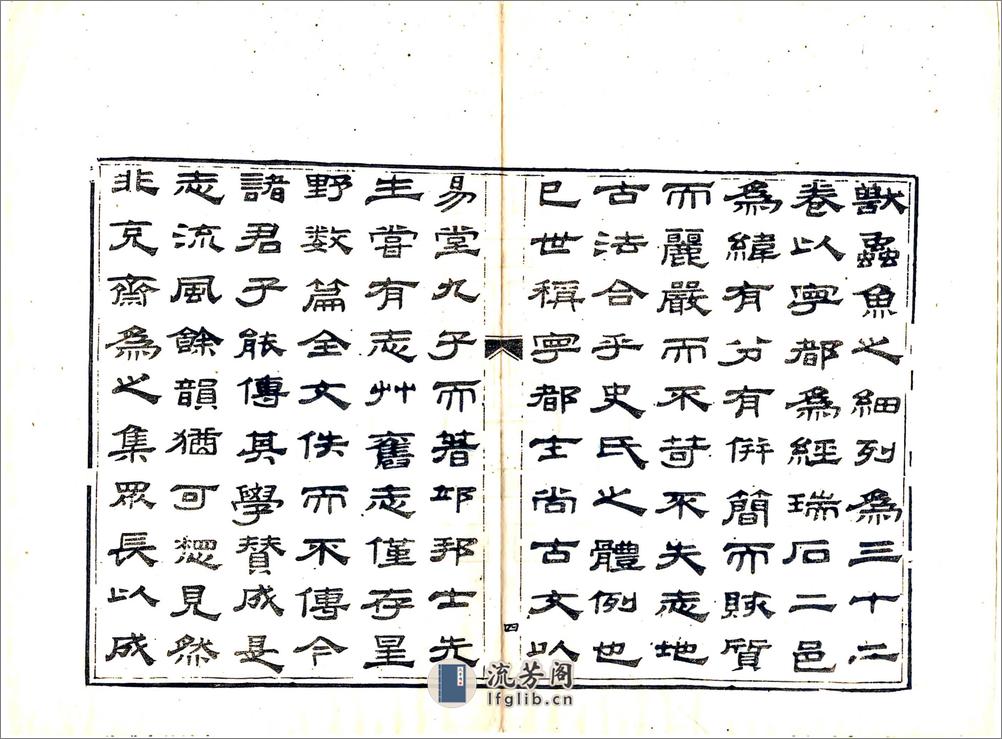 獸蟲魚之細列為三十二
卷以寧都為經瑞石二邑
為緯有分有併簡而賅質
而麗嚴而不苛不失志地
古法合乎史氏之體例也
已世稱寧都士尚古文以
四
易堂九子而著邱邦士先
生嘗有志艸舊志僅存星
野数篇全文佚而不傳今
諸君子能傳其學贊成是
志流風餘韻猶可想見然
非克齋為之集眾長以成
流芳阁
lfglib.cn